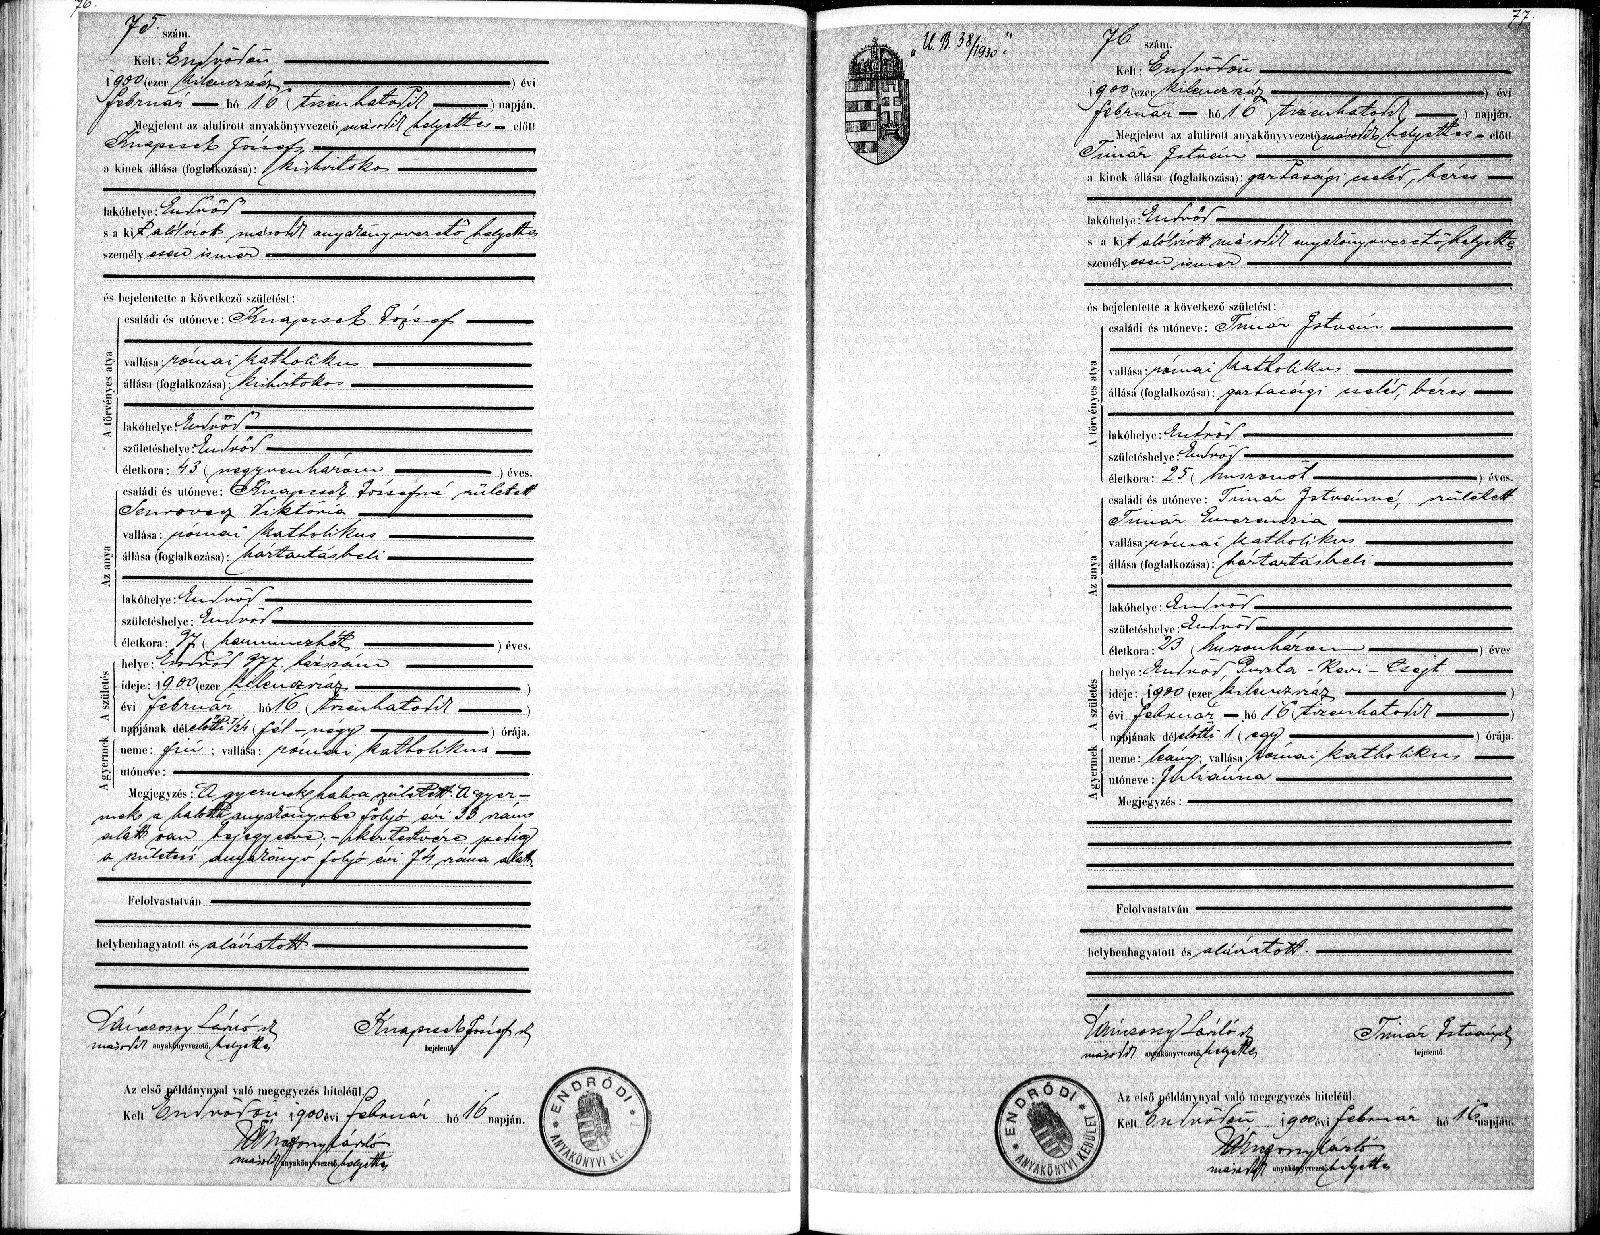 76.
75 szám.
Kelt: Endrődön
1900 (ezer kilenczszáz) évi
február hó 16 (tizenhatodik) napján.
Megjelent az alulirott anyakönyvvezető második helyettes előtt
Knapcsek József,
a kinek állása (foglalkozása): kisbirtokos
lakóhelye: Endrőd
s a kit alólirott második anyakönyvvezető helyettes
személyesen ismer
és bejelentette a következő születést:
A törvényes atya
családi és utóneve: Knapcsek József
vallása: római katholikus
állása (foglalkozása): kisbirtokos
lakóhelye: Endrőd
születéshelye: Endrőd
életkora: 43 (negyvenhárom) éves.
Az anya
családi és utóneve: Knapcsek Józsefné született
Viktória
vallása: római katholikus
állása (foglalkozása): háztartásbeli
lakóhelye: Endrőd
születéshelye: Endrőd
életkora: 37 (harminczhét) éves.
A születés
helye: Endrőd 377 házszám
ideje: 1900 (ezer kilenczszáz)
évi február hó 16 (tizenhatodik)
napjának délelőtti (fél-négy) órája.
A gyermek
neme: fiú; vallása: római katholikus
utóneve:
Megjegyzés: A gyermek halva született. A gyer-
mek a halotti anyakönyvbe folyó évi 33 szám
alatt van bejegyezve, - ikertestvére pedig
a születési anyakönyv folyó évi 74 száma alatt.
Felolvastatván
helybenhagyatott és aláíratott
László Knapcsek József
második anyakönyvvezető, helyettes bejelentő.
Az első példánynyal való megegyezés hiteléül.
Kelt Endrődön 1900 évi február hó 16 napján.
László
második anyakönyvvezető, helyettes
ENDRŐDI
ANYAKÖNYVI KE
77.
"U. B. 38/1930."
76 szám.
Kelt: Endrődön
1900 (ezer kilenczszáz) évi
február hó 16 (tizenhatodik) napján.
Megjelent az alulirott anyakönyvvezető második helyettes előtt
Timár István
a kinek állása (foglalkozása): gazdasági cseléd, béres
lakóhelye: Endrőd
s a kit alólirott második anyakönyvvezető helyettes
személyesen ismer
és bejelentette a következő születést:
A törvényes atya
családi és utóneve: Timár István
vallása: római katholikus
állása (foglalkozása): gazdasági cseléd, béres
lakóhelye: Endrőd
születéshelye: Endrőd
életkora: 25 (huszonöt) éves.
Az anya
családi és utóneve: Timár Istvánné, született
Timár Emerenczia
vallása: római katholikus
állása (foglalkozása): háztartásbeli
lakóhelye: Endrőd
születéshelye: Endrőd
életkora: 23 (huszonhárom) éves
A születés
helye: Endrőd, Puszta-Csejt
ideje: 1900 (ezer kilenczszáz)
évi február hó 16 (tizenhatodik)
napjának délelőtti 1 (egy) órája.
A gyermek
neme: leány; vallása: római katholikus
utóneve: Juliánna
Megjegyzés:
Felolvastatván
helybenhagyatott és aláíratott.
László Timár István
második anyakönyvvezető, helyettes bejelentő.
Az első példánynyal való megegyezés hiteléül.
Kelt Endrődön 1900 évi február hó 16 napján.
László
második anyakönyvvezető, helyettes
ENDRŐDI
ANYAKÖNYVI KERÜLET